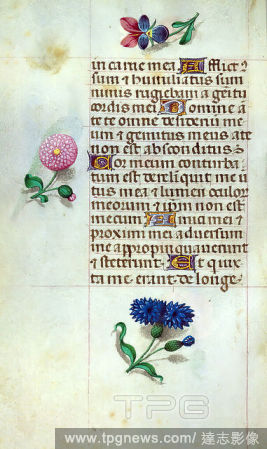 in carne mea Afflict9
sum & humiliatus sum
nimis rugiebam a gemitu
cordis mei Domine a
te te omne desideriū me
um & gemitus meus a te
non est absconditus
Cor meum conturba
tum est dereliquit me ui
tus mea & lumen oculor
meorum & ipm̄ non est
mecum Amici mei &
proximi mei aduersum
me appropinquauerunt
& steterunt Et qui iux
ta me erant de longe
TPG
www.tpgnews.com/ 達志影像